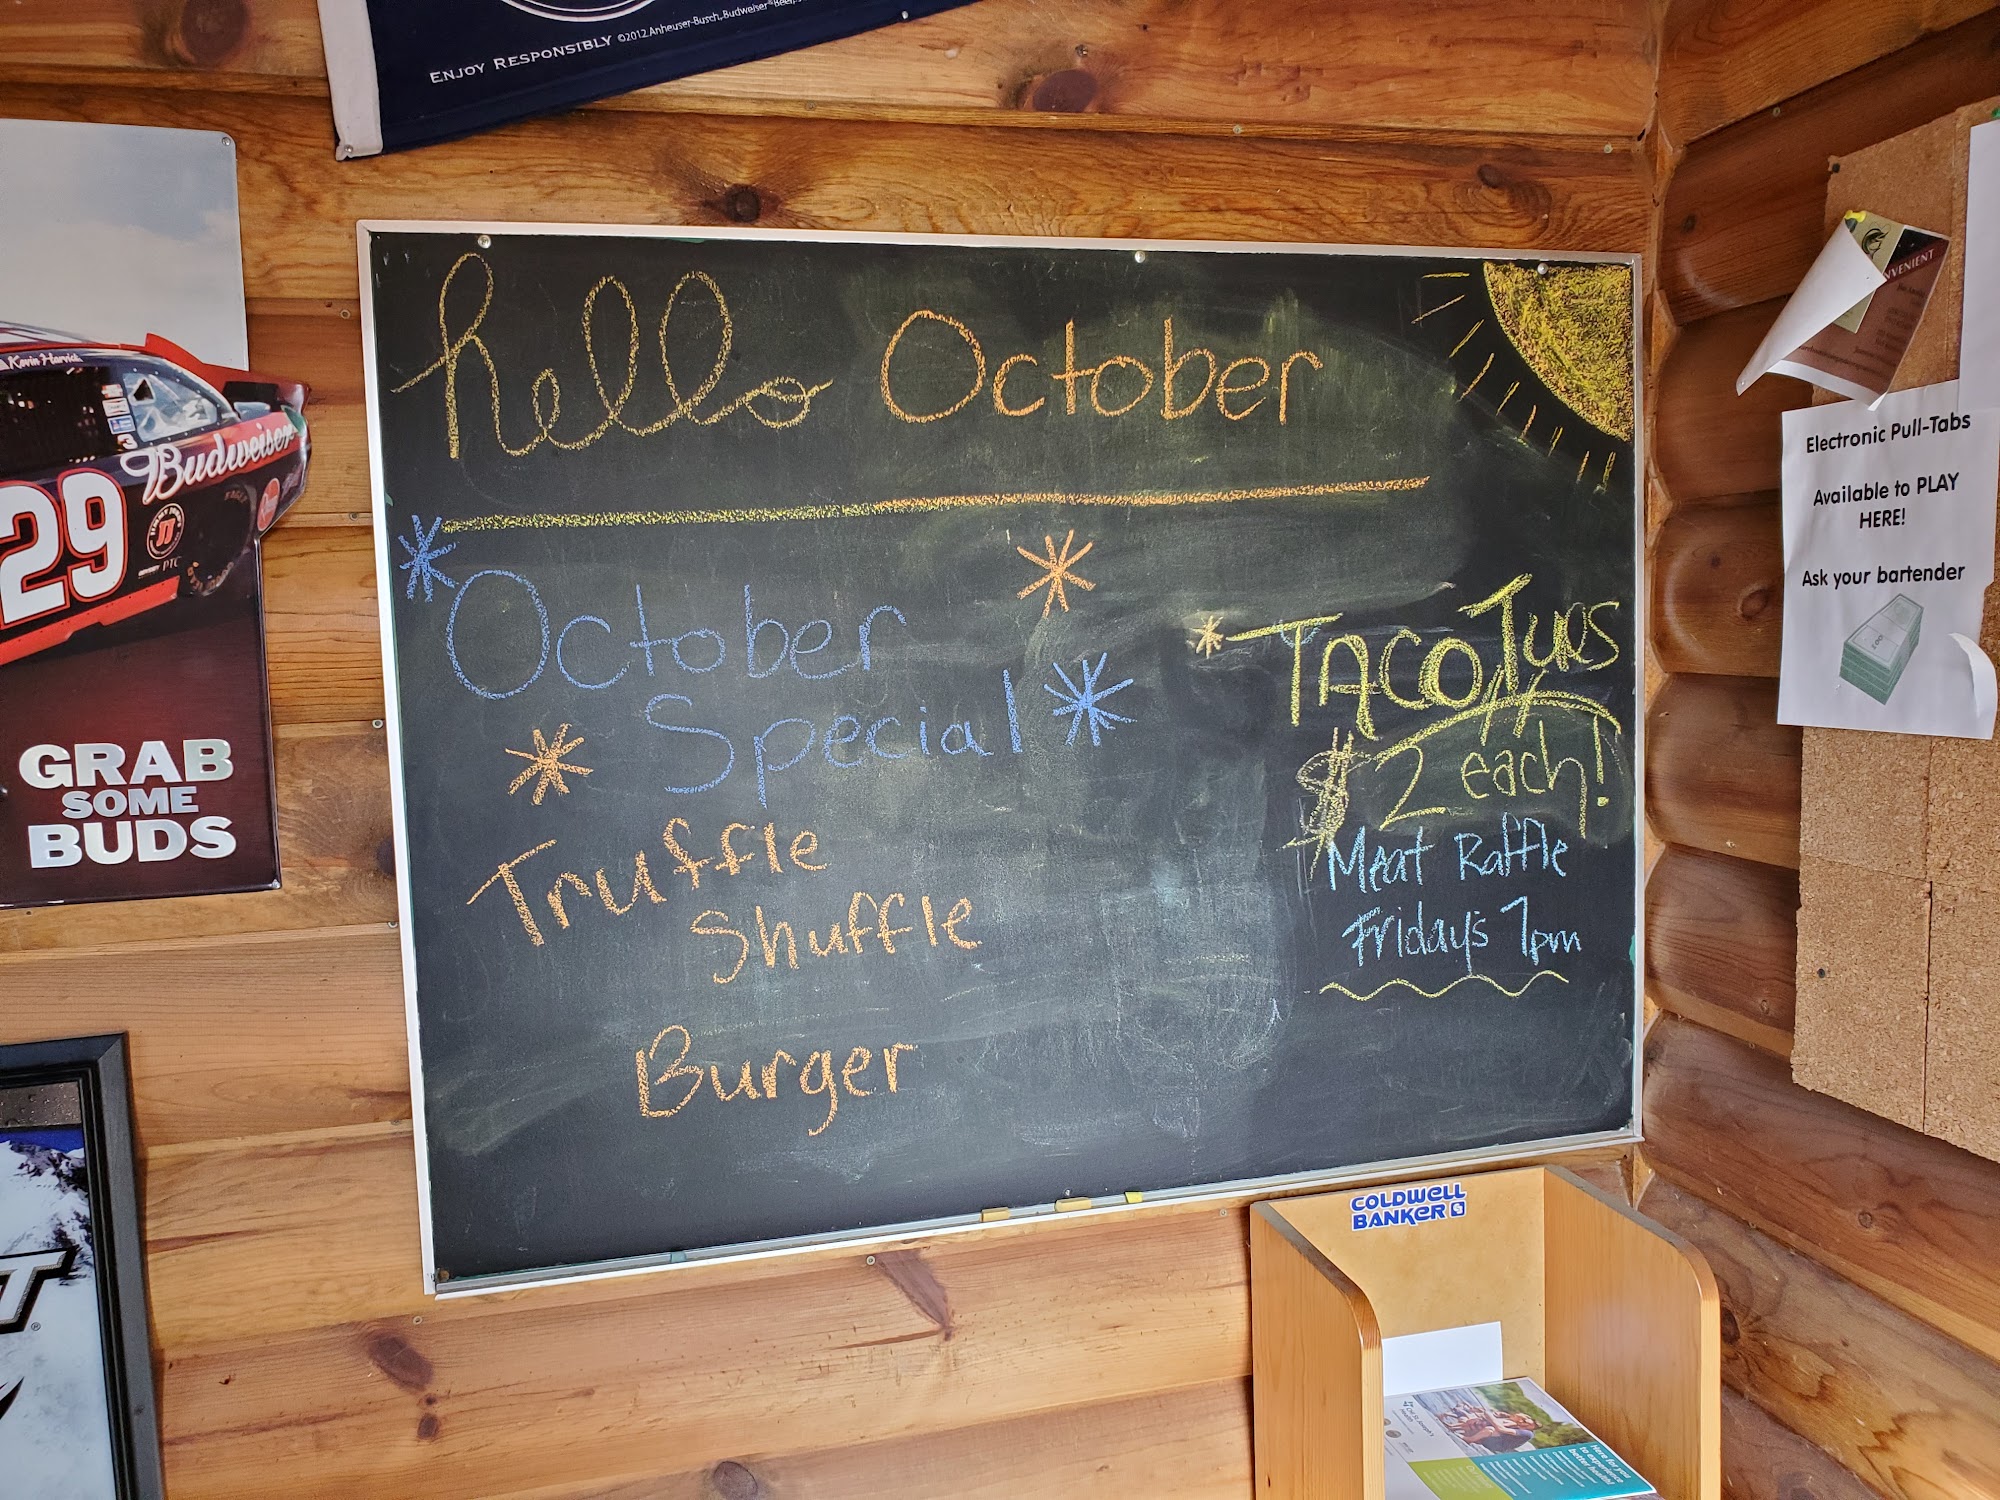 ENJOY RESPONSIBLY ©2012 Anheuser-Busch, Budweiser®
hello October
October
Special
Truffle
Shuffle
Burger
TACO Tues
$2 each!
Meat Raffle
Friday's 7pm
Kevin Harvick
Budweiser
29
GRAB
SOME
BUDS
Electronic Pull-Tabs
Available to PLAY
HERE!
Ask your bartender
COLDWELL
BANKER
Here for you
to experience
better health!